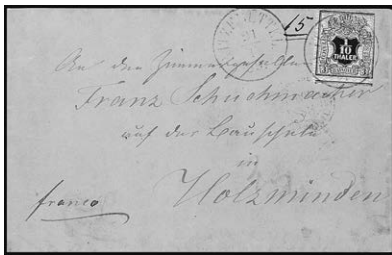 15
1/10
THALER
An den Zimmergesellen
Franz Schuchmacher
auf der Bauschule
in
Holzminden
franco